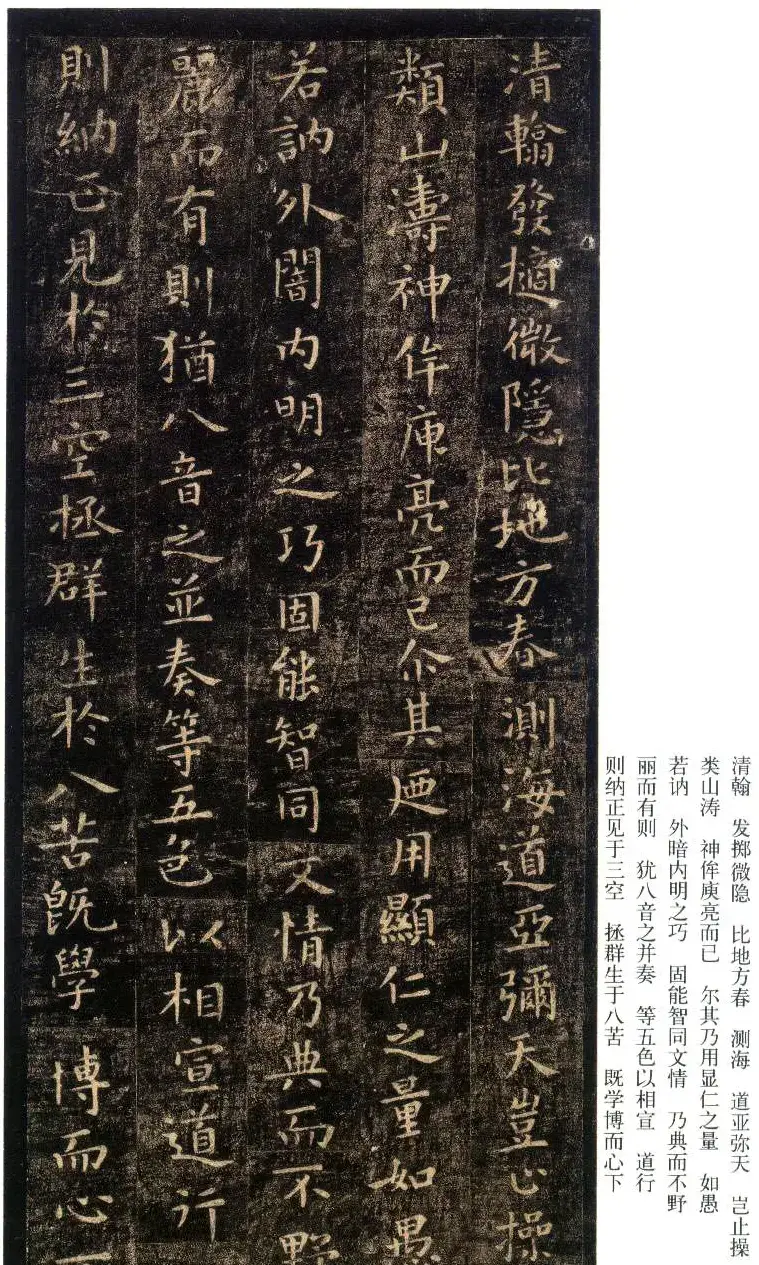 清翰發擿微隱比地方春測海道亞彌天豈止操
類山濤神侔庾亮而已尒其迺用顯仁之量如愚
若訥外闇内明之巧固能智同文情乃典而不野
麗而有則猶八音之並奏等五色以相宣道行
則納正見於三空拯群生於八苦既學博而心
清翰 发掷微隐 比地方春 测海 道亚弥天 岂止操
类山涛 神侔庾亮而已 尔其乃用显仁之量 如愚
若讷 外暗内明之巧 固能智同文情 乃典而不野
丽而有则 犹八音之并奏 等五色以相宣 道行
则纳正见于三空 拯群生于八苦 既学博而心下